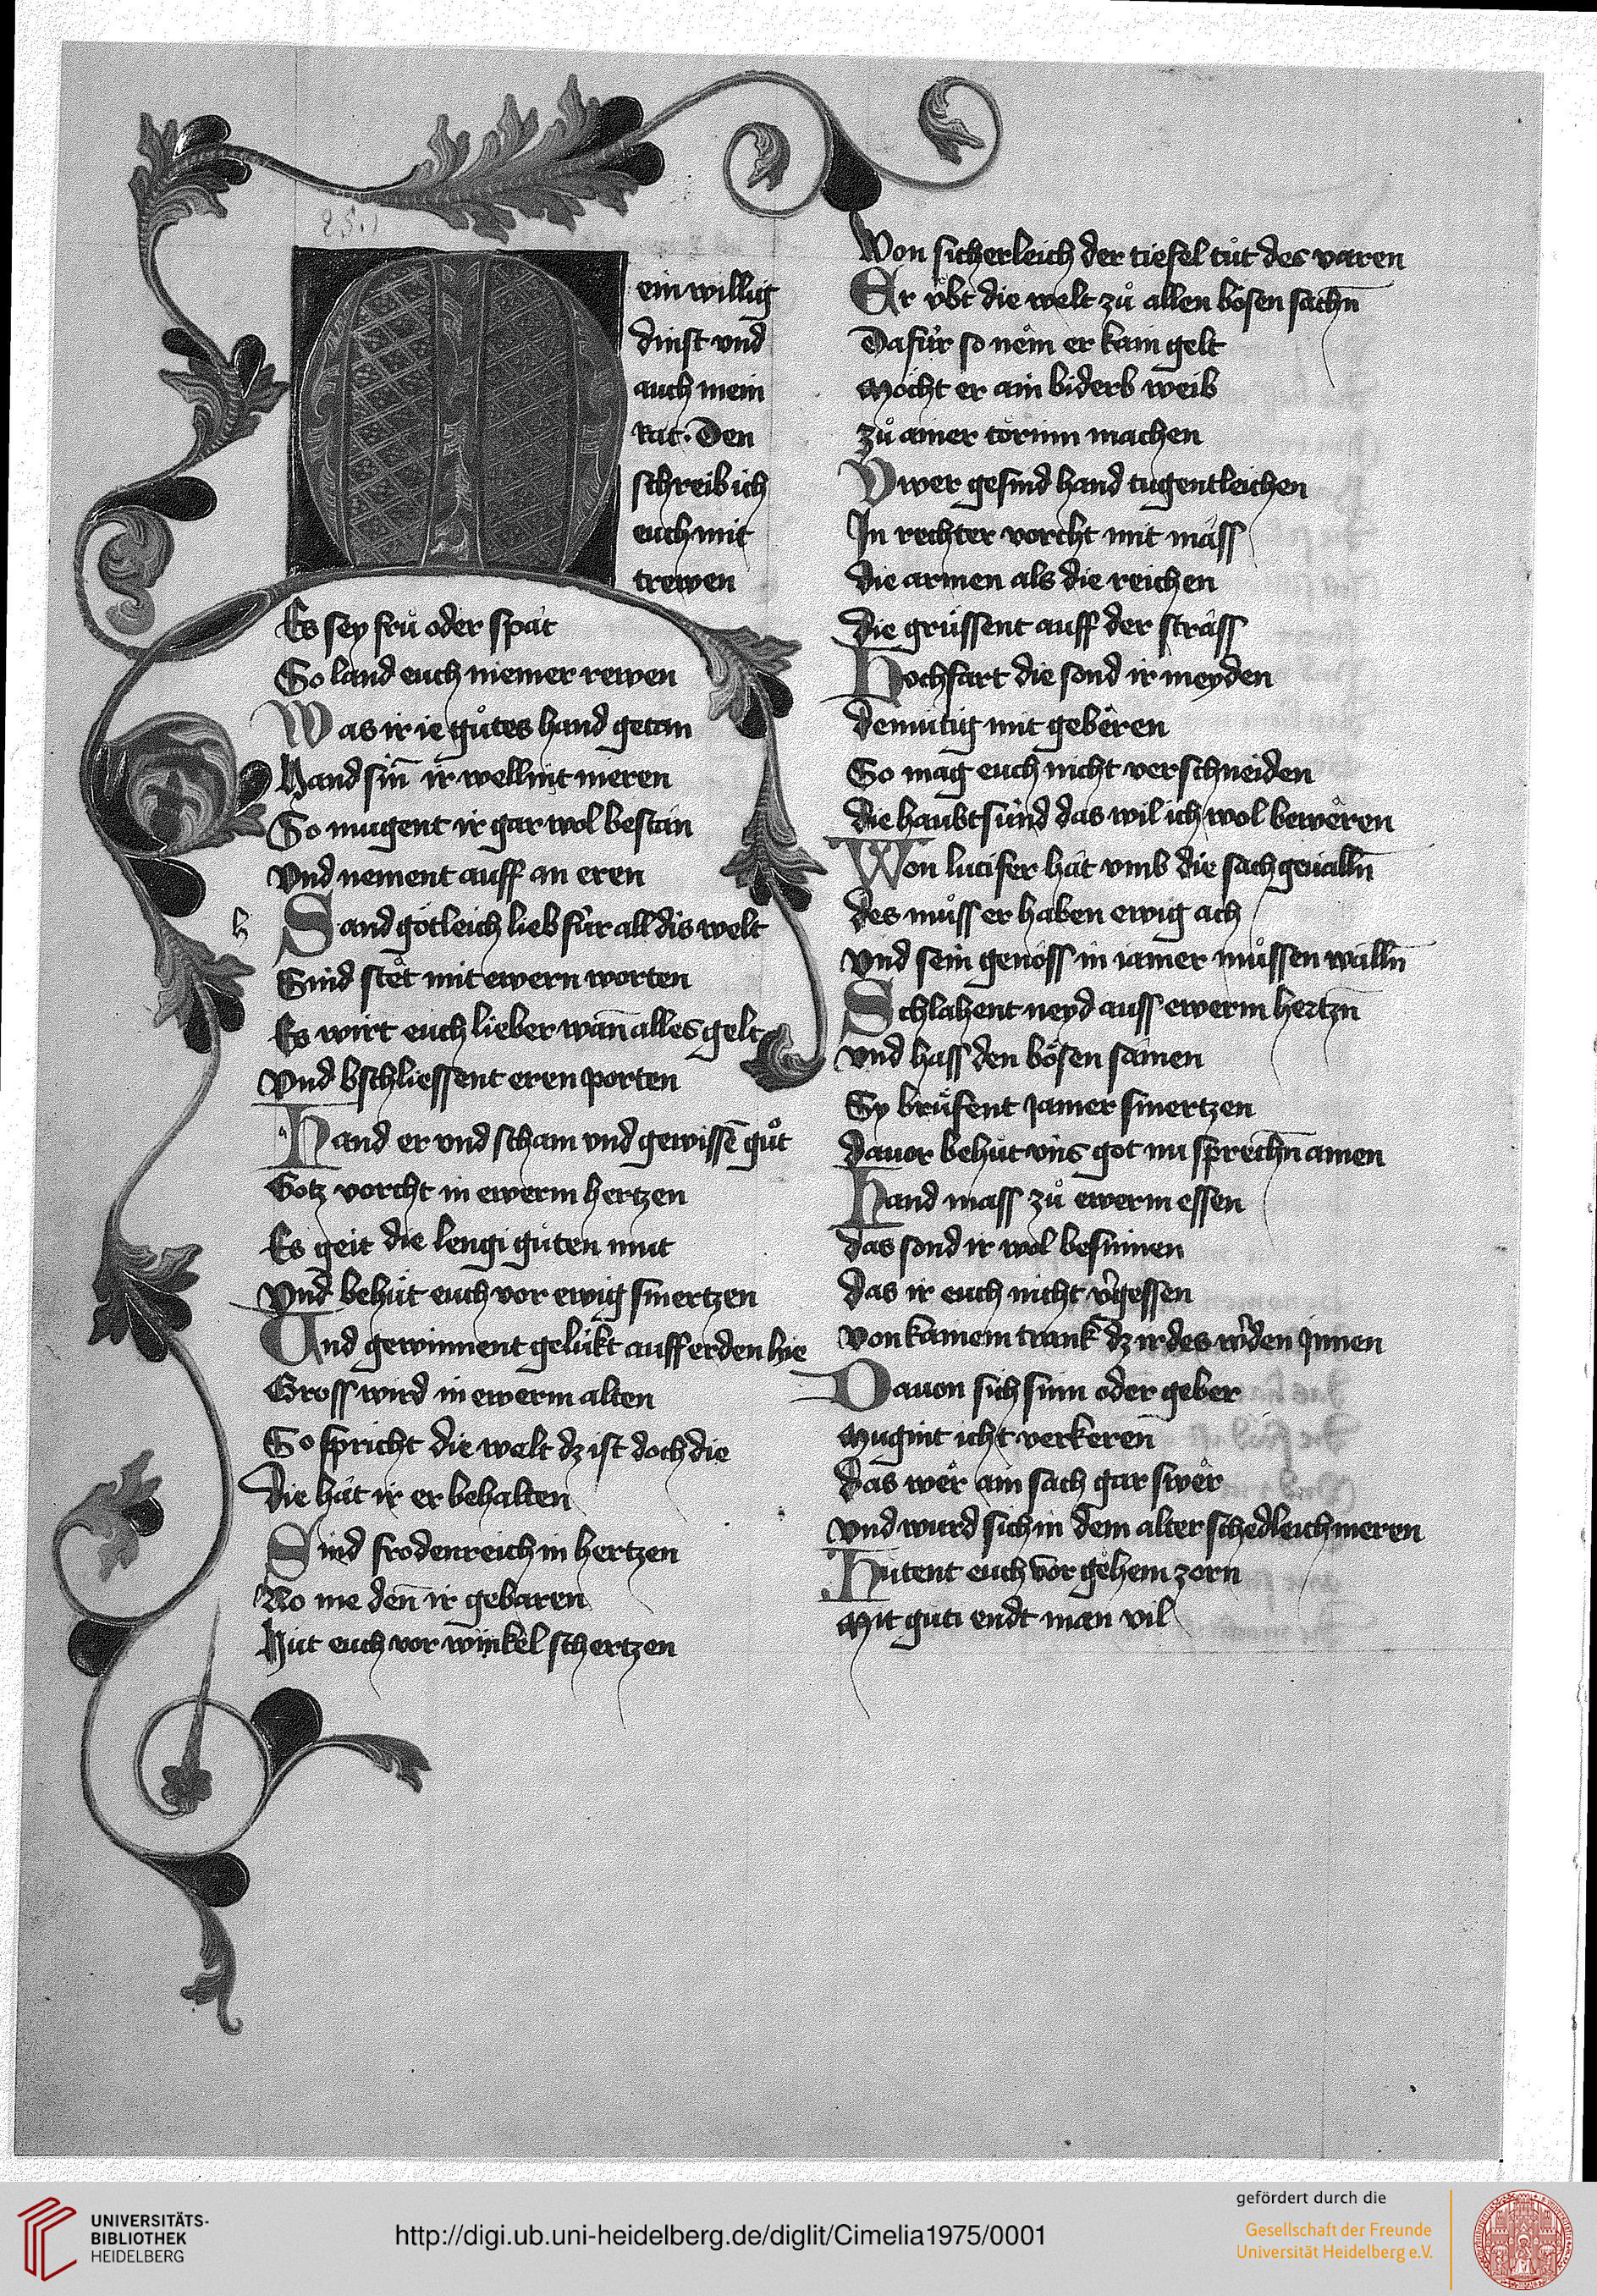 25.1
Mein willig
dinst vnd
auch mein
Rat. Den
schreib ich
euch mit
trewen
Es sey fruͦ oder spat
So land euch niemer rewen
Was ir ie guͦtes hand getan
Hand sin̄ ir wellint meren
So mugent ir gar wol bestan
Vnd nement auff an eren
h Sand gotleich lieb für all dis welt
Sind stet mit ewern worten
Es wirt euch lieber wan̄ alles gelt
Vnd bschliessent eren porten
Hand er vnd scham vnd gewissē guͦt
Gotz vorcht in ewerm hertzen
Es geit die lengi guͦten mut
Vnd behuͤt euch vor ewig smertzen
Und gewinnent gelükt auff erden hie
Gross wird in ewerm alten
So spricht die welt dz ist doch die
Die hat ir er behalten
Sind frodenreich in hertzen
Ro me den̄ ir gebaren
Hüt euch vor winkel schertzen
Won sicherleich der tiefel tuͦt des varen
Er vͤbt die welt zuͦ allen bösen sachn̄
Dafür so nem er kain gelt
Möcht er ain biderb weib
zuͦ ainer törinn machen
Vwer gesind hand tugentleichen
In rechter vorcht mit mass
die armen als die reichen
Die grüssent auff der strass
Hochfart die sond ir meyden
demütig mit geberen
So mag euch nicht verschneiden
die haubtsünd das wil ich wol beweren
Won lucifer hat vmb die sach geualln̄
des muͦss er haben ewig ach
vnd sein genoss in iamer muͦssen walln̄
Schlahent neyd auss ewerm hertzn̄
vnd hass den bösen samen
Sy bruͤfent Jamer smertzen
dauor behuͤt vns got nu sprechn̄ amen
Hand mass zuͦ ewerm essen
das sond ir wol besinnen
das ir euch nicht v̓gessen
von kainem trank dz ir des wͦden Jnnen
Dauon sich sinn oder geber
Mugint icht verkeren
Das wer ain sach gar swer
vnd wurd sich in dem alter schedleich meren
Hütent euch vor gehem zorn
Mit guti endt man vil
UNIVERSITÄTS-
BIBLIOTHEK
HEIDELBERG
http://digi.ub.uni-heidelberg.de/diglit/Cimelia1975/0001
gefördert durch die
Gesellschaft der Freunde
Universität Heidelberg e.V.